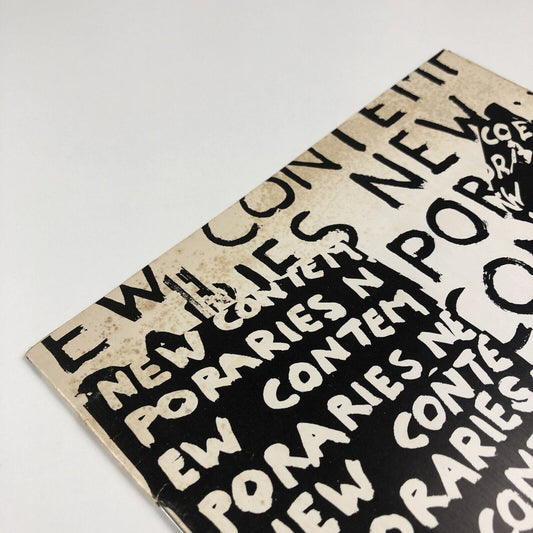 EW CONTEM
RARIES NEW
POR
CO
COE
NEW CONTEM
PORARIES N
EW CONTEM
PORARIES NE
NEW CONTE
PORARIES
CON